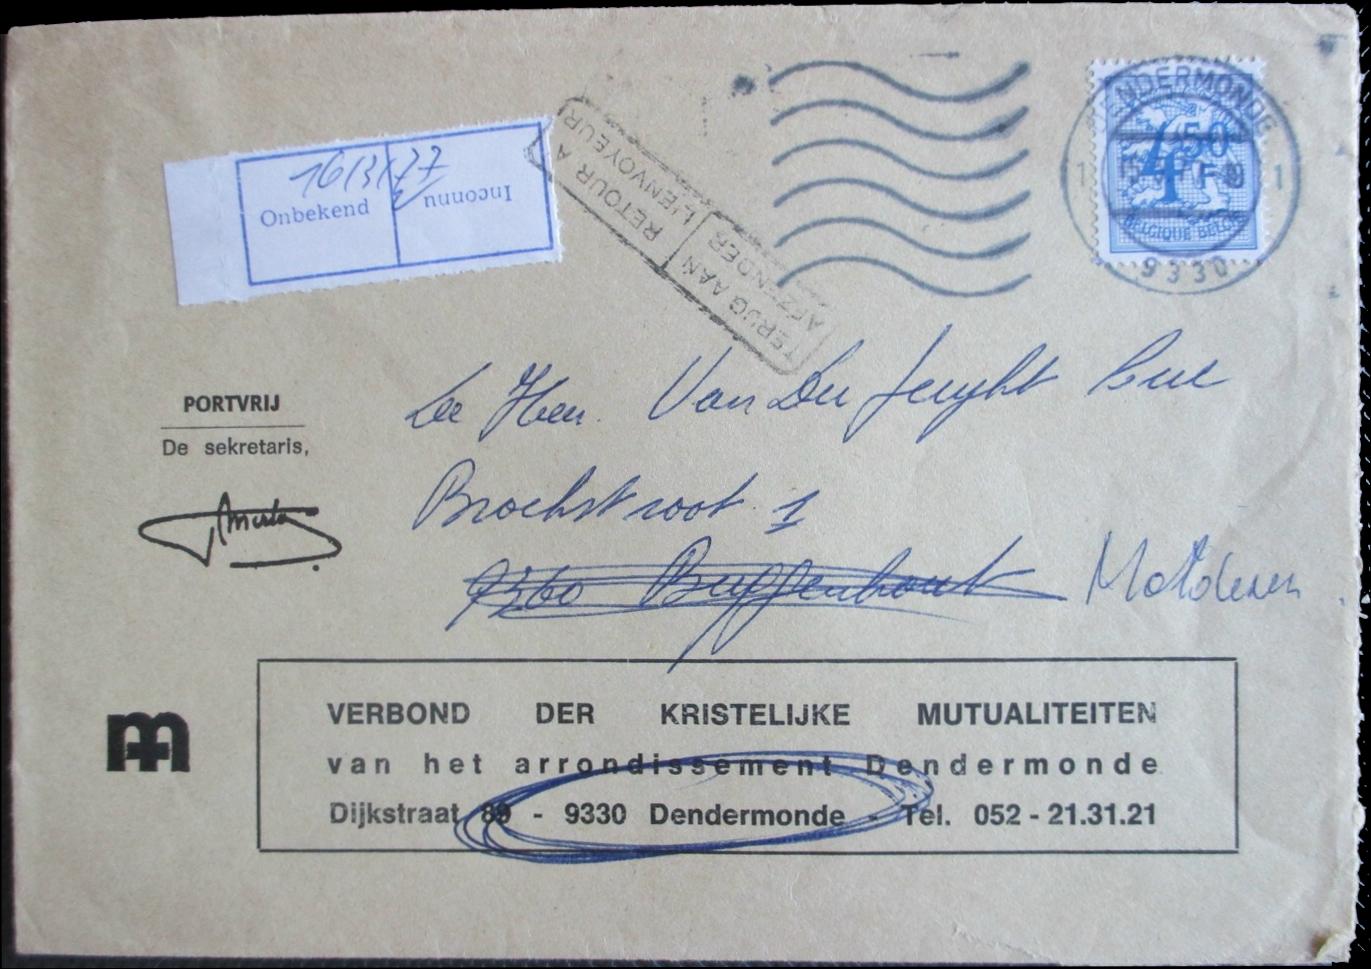 16/3/77
Onbekend
Inconnu
RETOUR A
L'ENVOYEUR
TERUG AAN
AFZENDER
NDERMONDE
4F50
BELGIQUE BELGIE
1
9330
PORTVRIJ
De sekretaris,
De Heer. Van Der Luc
Broekstraat 1
9360 Buggenhout Molderen
VERBOND DER KRISTELIJKE MUTUALITEITEN
van het arrondissement Dendermonde
Dijkstraat 89 - 9330 Dendermonde - Tel. 052 - 21.31.21